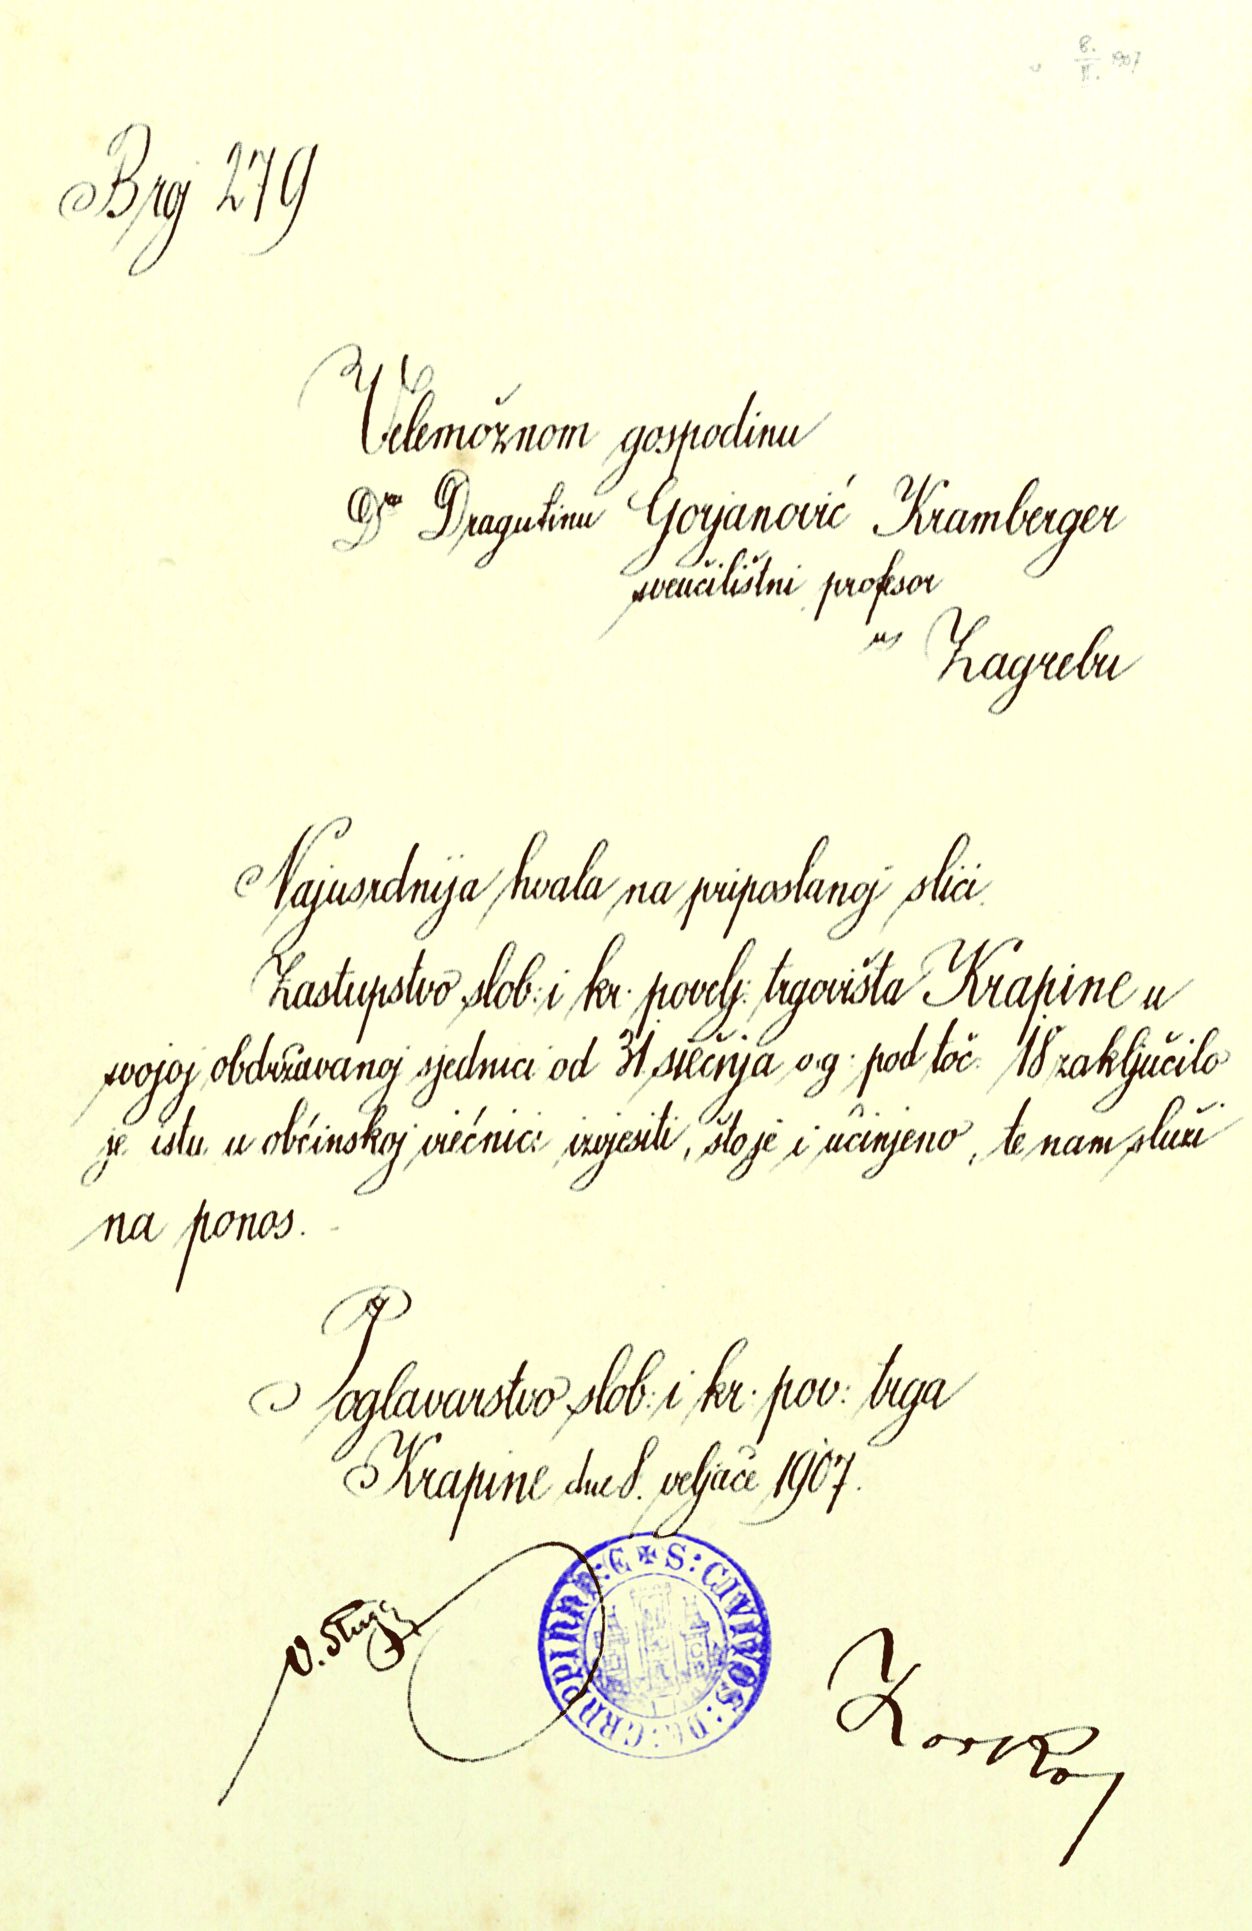 8.
II. 1907
Broj 279
Velemožnom gospodinu
Dru Dragutinu Gorjanović Kramberger
sveučilištni profesor
u Zagrebu
Najusrdnija hvala na priposlanoj slici.
Zastupstvo slob: i kr. povelj: trgovišta Krapine u
svojoj obdržavanoj sjednici od 31. siečnja o.g. pod toč. 18 zaključilo
je istu u obćinskoj viećnici izvjesiti, što je i učinjeno, te nam služi
na ponos.
Poglavarstvo slob: i kr. pov: trga
Krapine dne 8. veljače 1907.
S: CIVIVOS: DE: CRAPPINNA:E